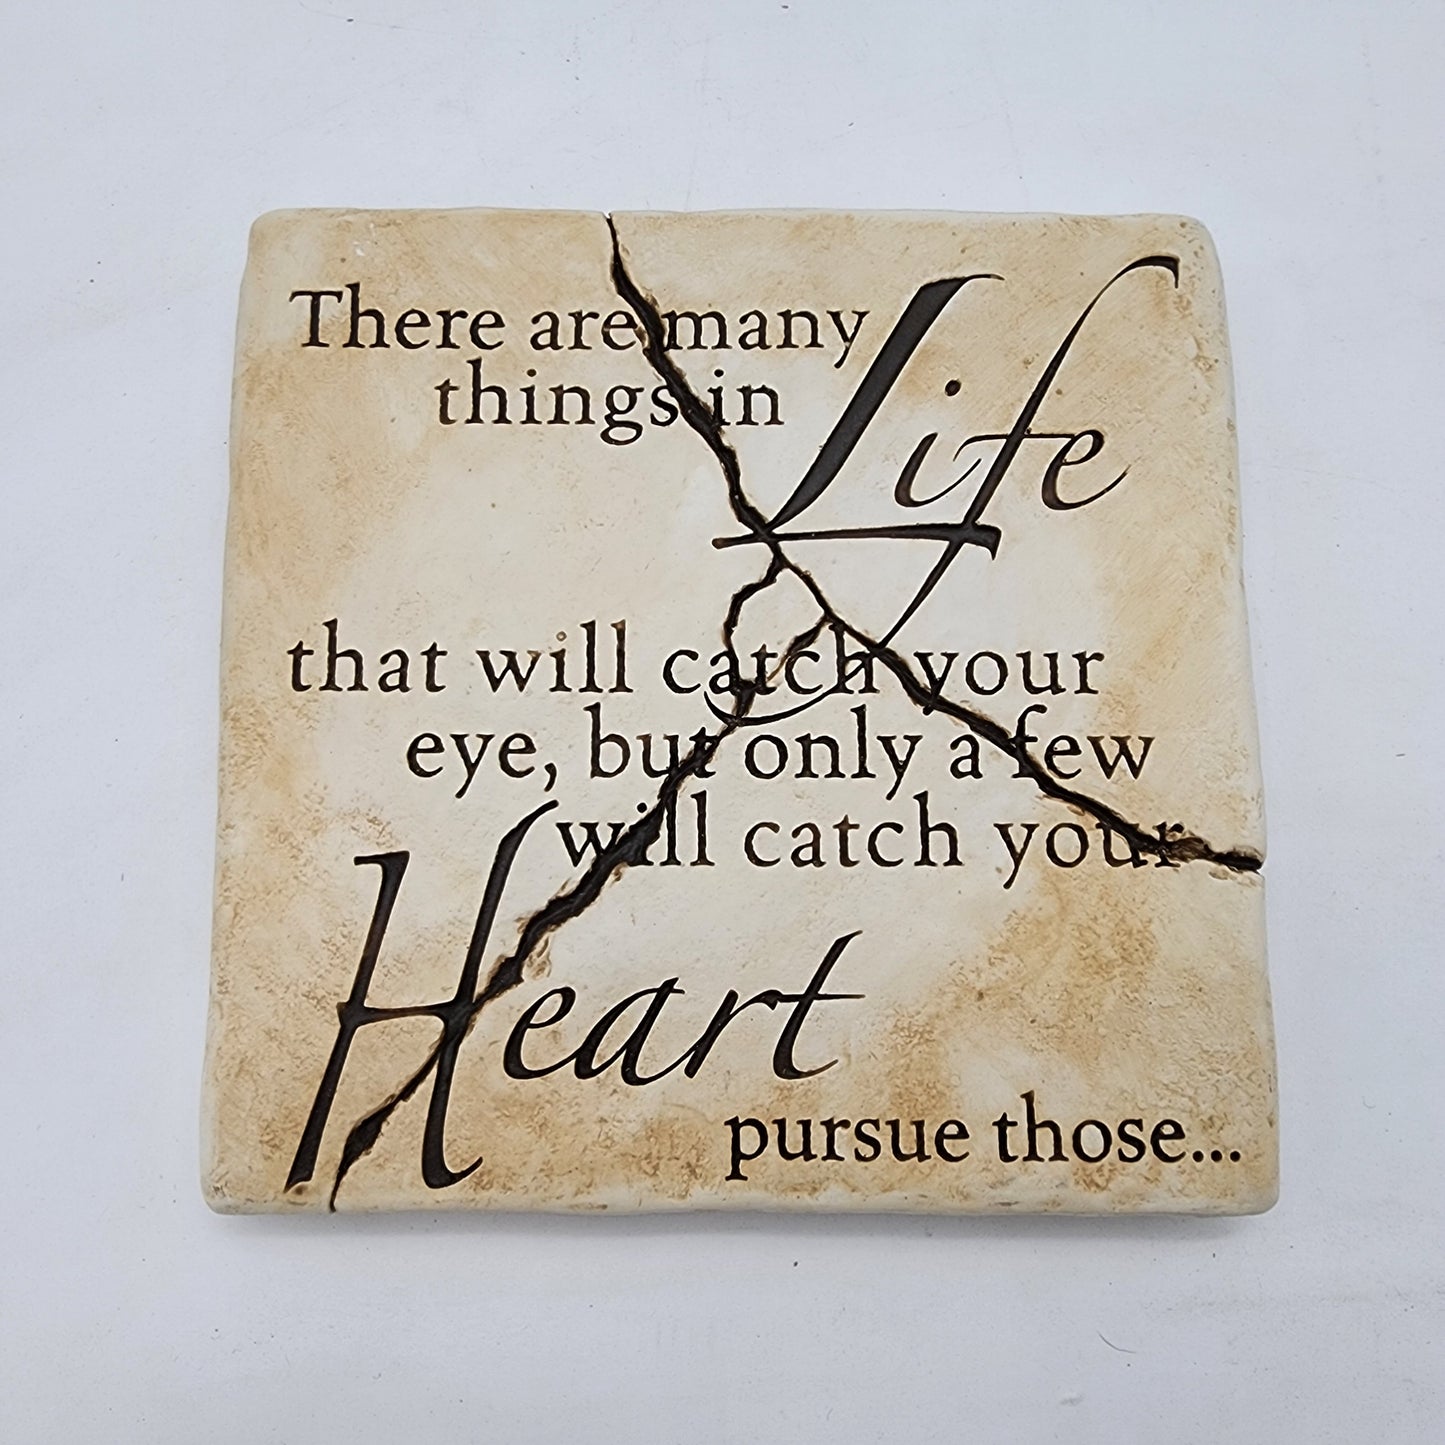 There are many
things in Life
that will catch your
eye, but only a few
will catch your
Heart
pursue those...